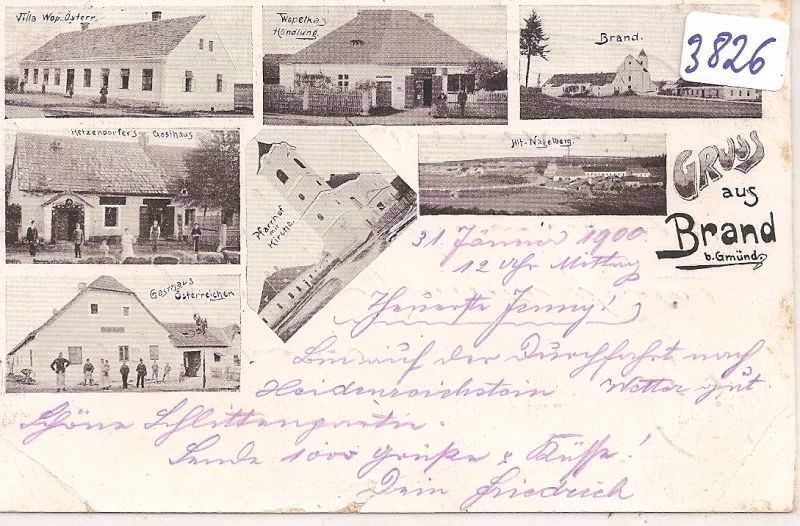 Villa Wop. Österr.
Wopelkas
Handlung
Brand.
3826
Hetzendorfer's Gasthaus
Pfarrhof
mit
Kirche
Alt-Nagelberg.
Gruss
aus
Brand
b. Gmünd
Gasthaus
Österreicher
31. Jänner 1900
12 Uhr Mittag
Theuerste Jenny!
Bin auf der Durchfahrt nach
Heidenreichstein Wetter gut
Schöne Schlittenpartie.
Sende 1000 Grüße & Küsse!
Dein Friedrich